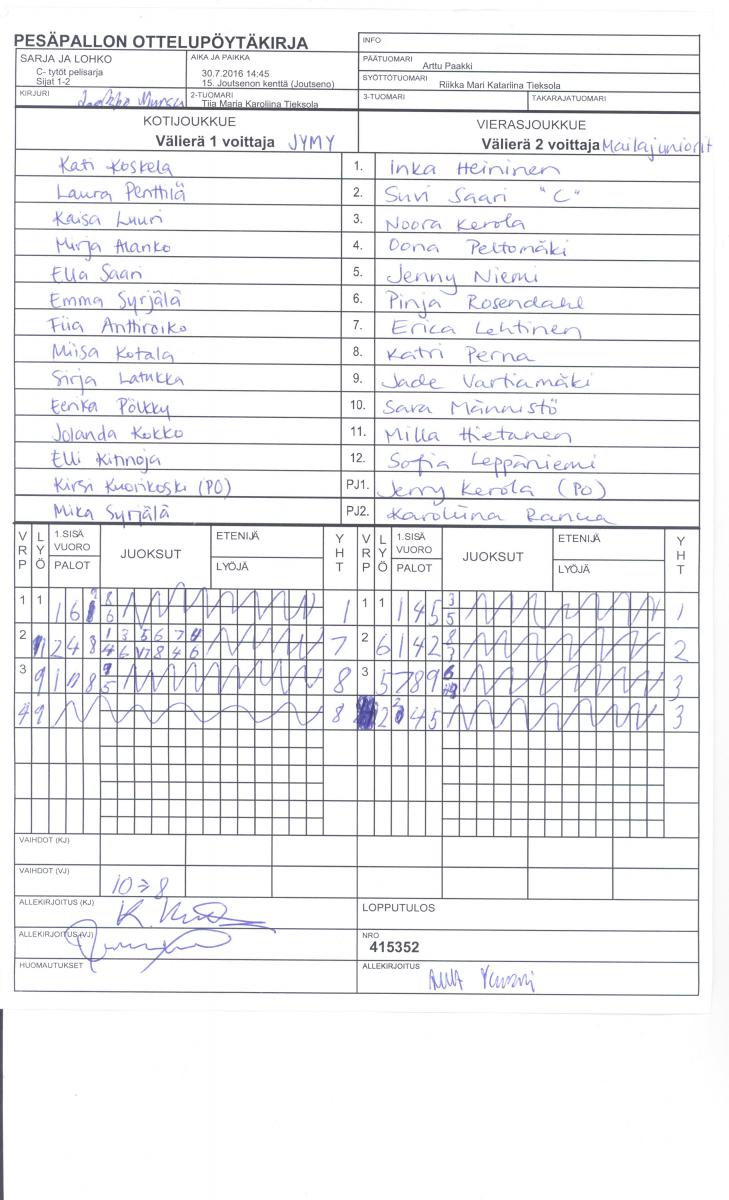 PESÄPALLON OTTELUPÖYTÄKIRJA
INFO
SARJA JA LOHKO
C- tytöt pelisarja
Sijat 1-2
AIKA JA PAIKKA
30.7.2016 14:45
15. Joutsenon kenttä (Joutseno)
PÄÄTUOMARI
Arttu Paakki
SYÖTTÖTUOMARI
Riikka Mari Katariina Tieksola
KIRJURI
2-TUOMARI
Tiia Maria Karoliina Tieksola
3-TUOMARI
TAKARAJATUOMARI
KOTIJOUKKUE
Välierä 1 voittaja JYMY
VIERASJOUKKUE
Välierä 2 voittaja Mailajuniorit
Kati Koskela 1. Inka Heininen
Laura Penttilä 2. Suvi Saari "C"
Kaisa Luuri 3. Noora Kerola
Mirja Alanko 4. Oona Peltomäki
Ella Saari 5. Jenny Niemi
Emma Syrjälä 6. Pinja Rosendahl
Fiia Anthroiko 7. Erica Lehtinen
Miisa Kotala 8. Katri Perna
Sirja Latukka 9. Jade Vartiamäki
Eerika Pölkky 10. Sara Männistö
Jolanda Kokko 11. Milla Hietanen
Elli Kinnoja 12. Sofia Leppäniemi
Kirsi Kuorikoski (PO) PJ1. Jerry Kerola (PO)
Mika Syrjälä PJ2. Karoliina Ranua
VRP LYÖ 1.SISÄ VUORO PALOT JUOKSUT ETENIJÄ LYÖJÄ YHT VRP LYÖ 1.SISÄ VUORO PALOT JUOKSUT ETENIJÄ LYÖJÄ YHT
1 1 1 6 8 6 1 1 1 1 4 5 3 5 1
2 2 4 8 7 2 6 1 4 2 2
3 9 1 8 9 5 8 3 5 7 8 9 6 3
4 9 8 2 4 5 3
VAIHDOT (KJ)
VAIHDOT (VJ)
10→8
ALLEKIRJOITUS (KJ)
LOPPUTULOS
ALLEKIRJOITUS (VJ)
NRO
415352
HUOMAUTUKSET
ALLEKIRJOITUS